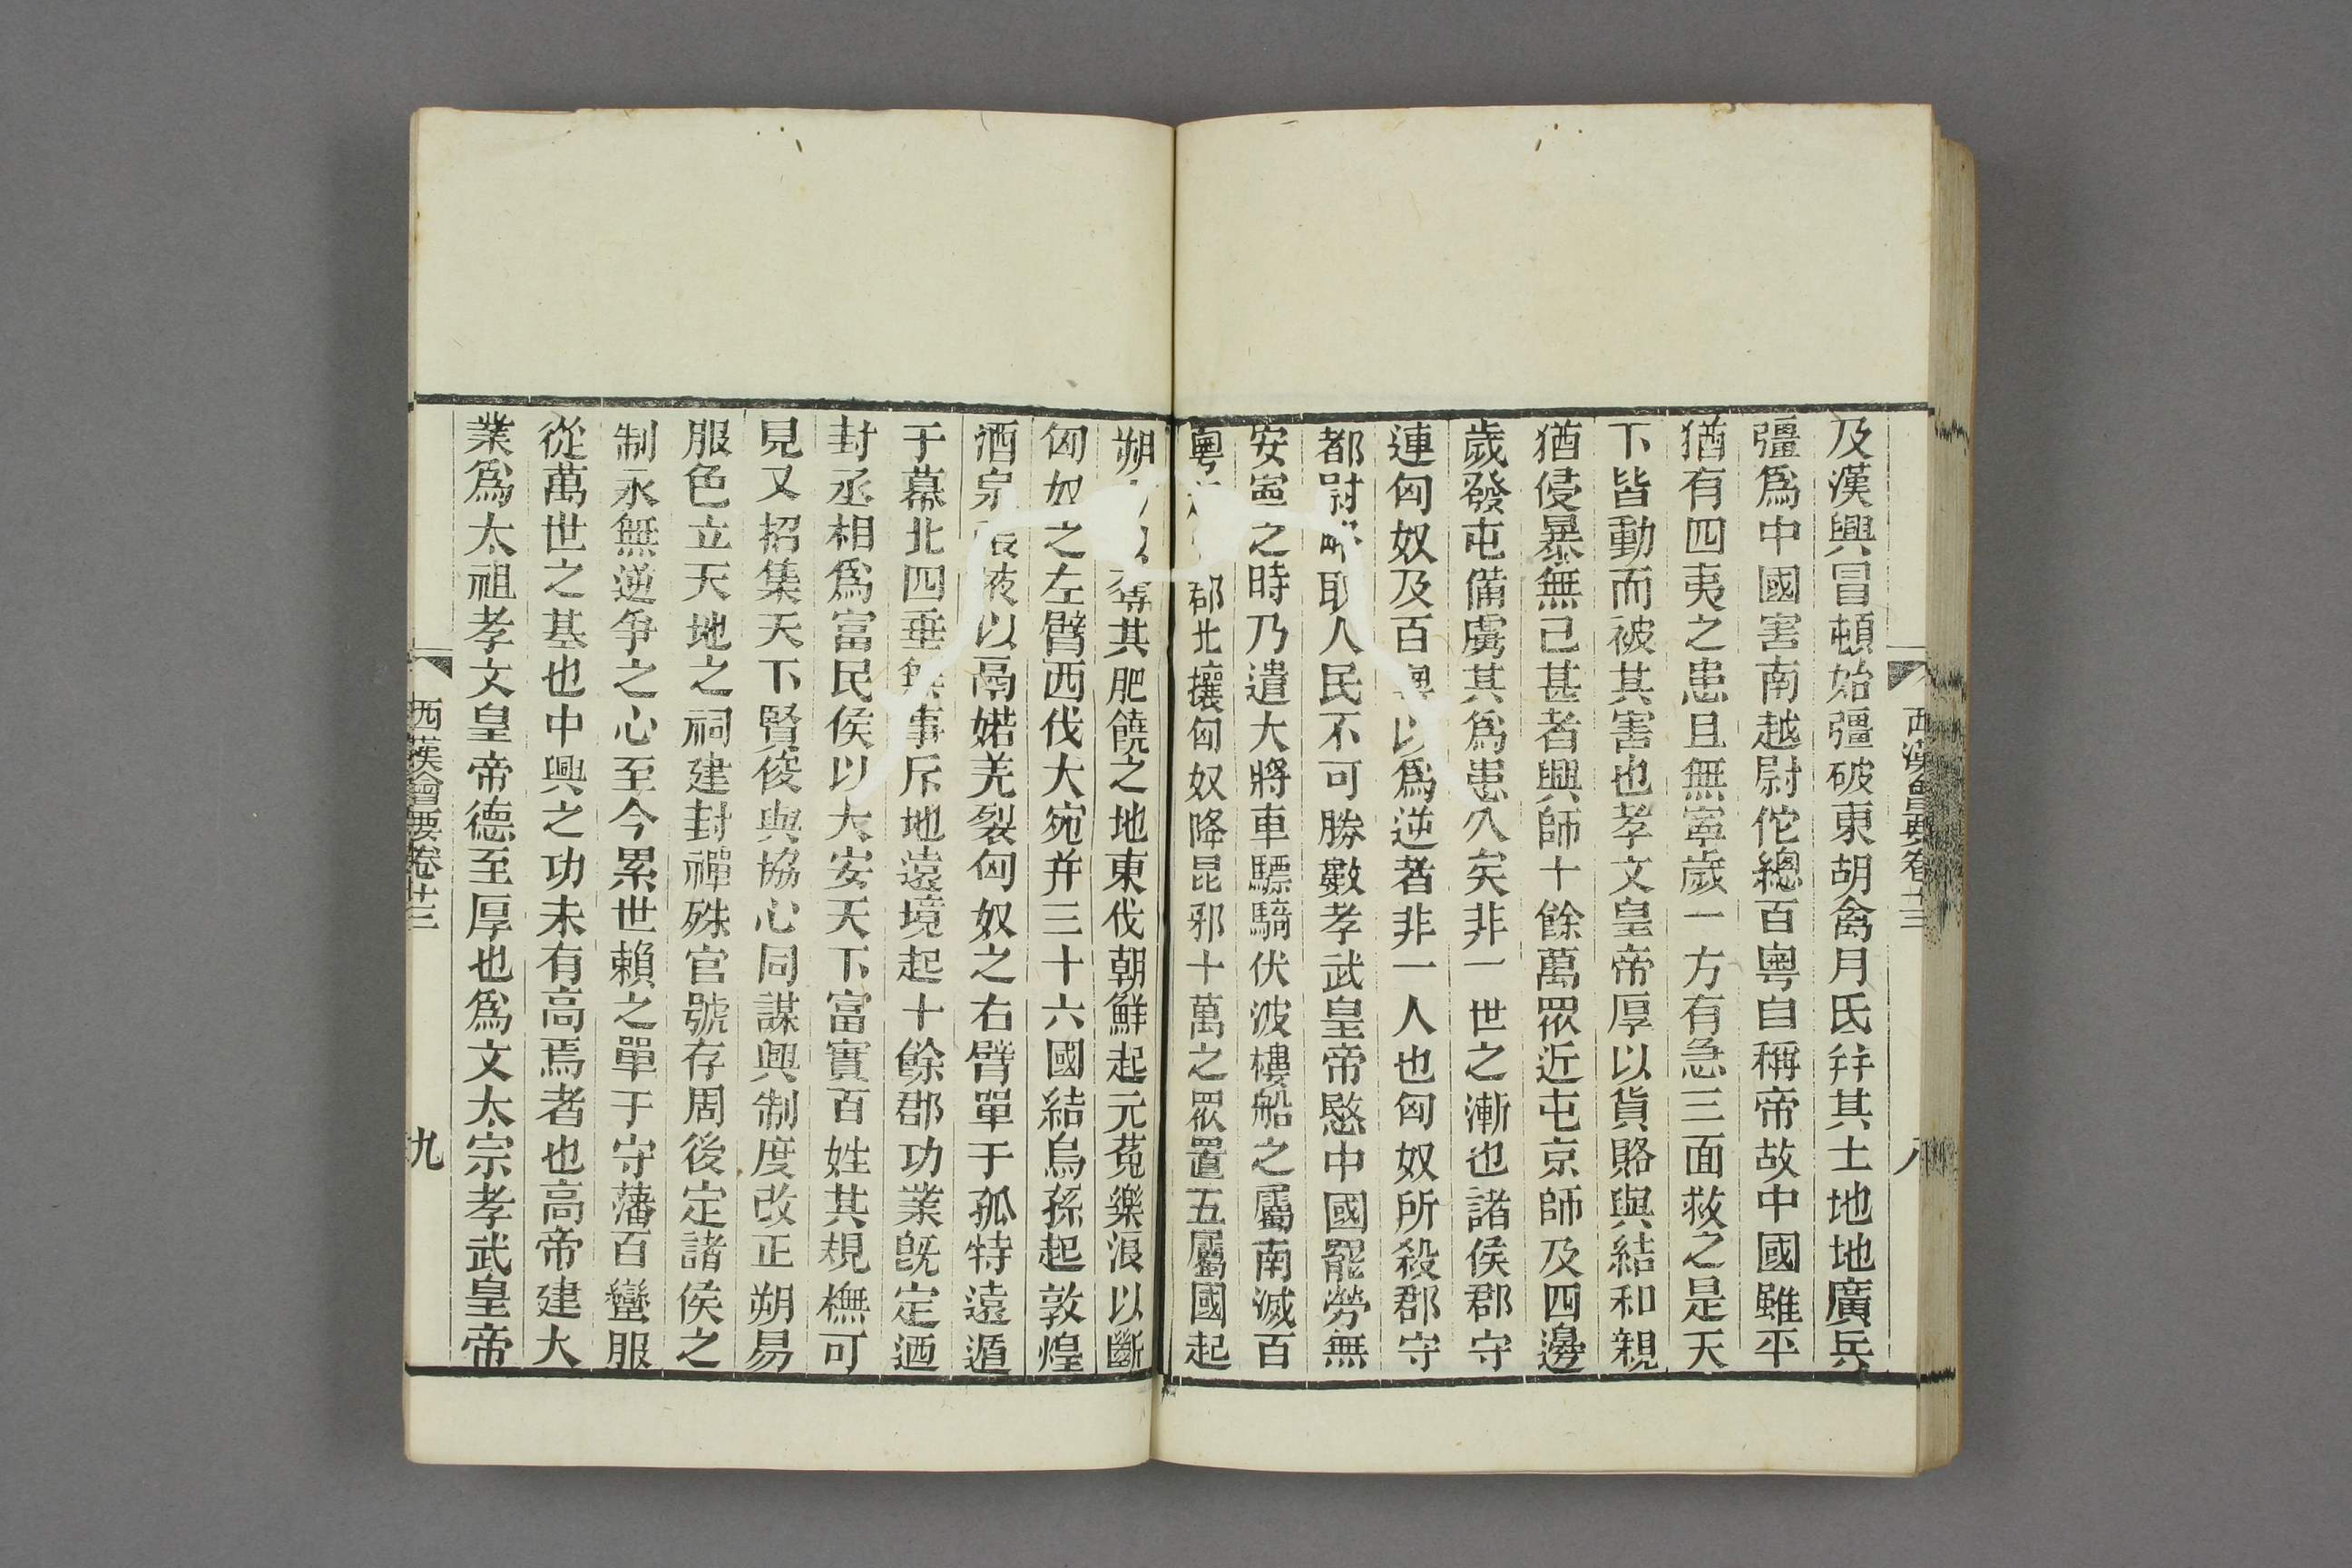 及漢興冒頓始彊破東胡禽月氏幷其土地地廣兵
彊爲中國害南越尉佗總百粵自稱帝故中國雖平
猶有四夷之患且無寧歲一方有急三面救之是天
下皆動而被其害也孝文皇帝厚以貨賂與結和親
猶侵暴無已甚者興師十餘萬眾近屯京師及四邊
歲發屯備虜其爲患久矣非一世之漸也諸侯郡守
連匈奴及百粵以爲逆者非一人也匈奴所殺郡守
都尉略取人民不可勝數孝武皇帝愍中國罷勞無
安寧之時乃遣大將車驃騎伏波樓船之屬南滅百
粵郡北攘匈奴降昆邪十萬之眾置五屬國起
西漢會要卷十三
八
朔奪其肥饒之地東伐朝鮮起元菟樂浪以斷
匈奴之左臂西伐大宛并三十六國結烏孫起敦煌
酒泉張掖以鬲婼羌裂匈奴之右臂單于孤特遠遁
于幕北四垂無事斥地遠境起十餘郡功業旣定迺
封丞相爲富民侯以大安天下富實百姓其規橅可
見又招集天下賢俊與協心同謀興制度改正朔易
服色立天地之祠建封禪殊官號存周後定諸侯之
制永無逆爭之心至今累世賴之單于守藩百蠻服
從萬世之基也中興之功未有高焉者也高帝建大
業爲太祖孝文皇帝德至厚也爲文太宗孝武皇帝
西漢會要卷十三
九